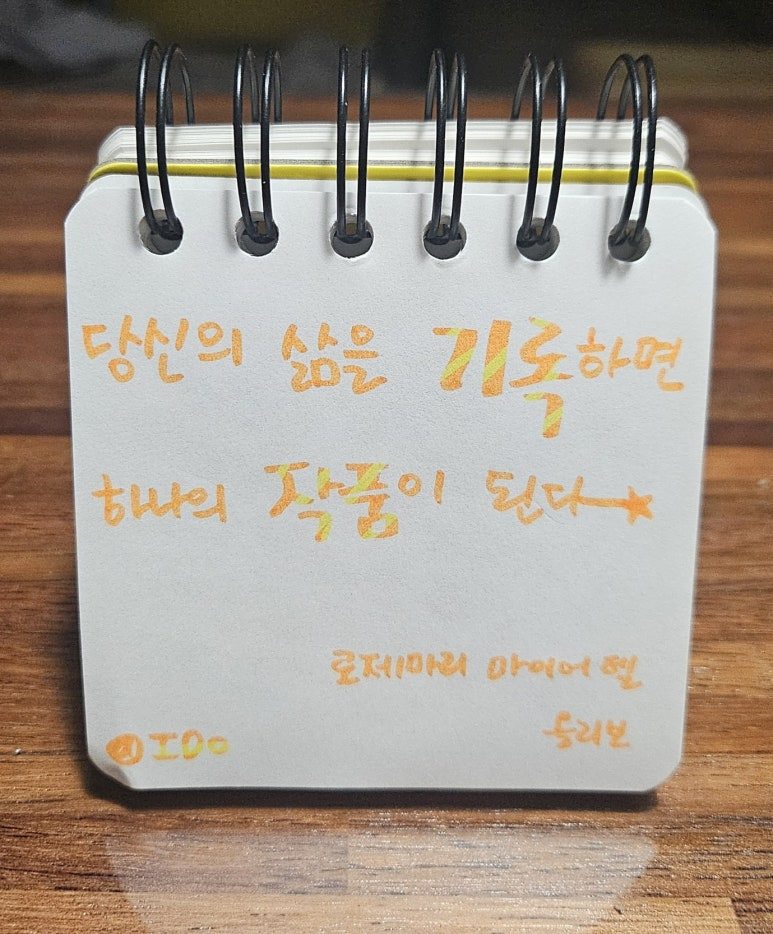 당신의 삶을 기록하면
하나의 작품이 된다
로제마리 마이어 델
올리보
IDO